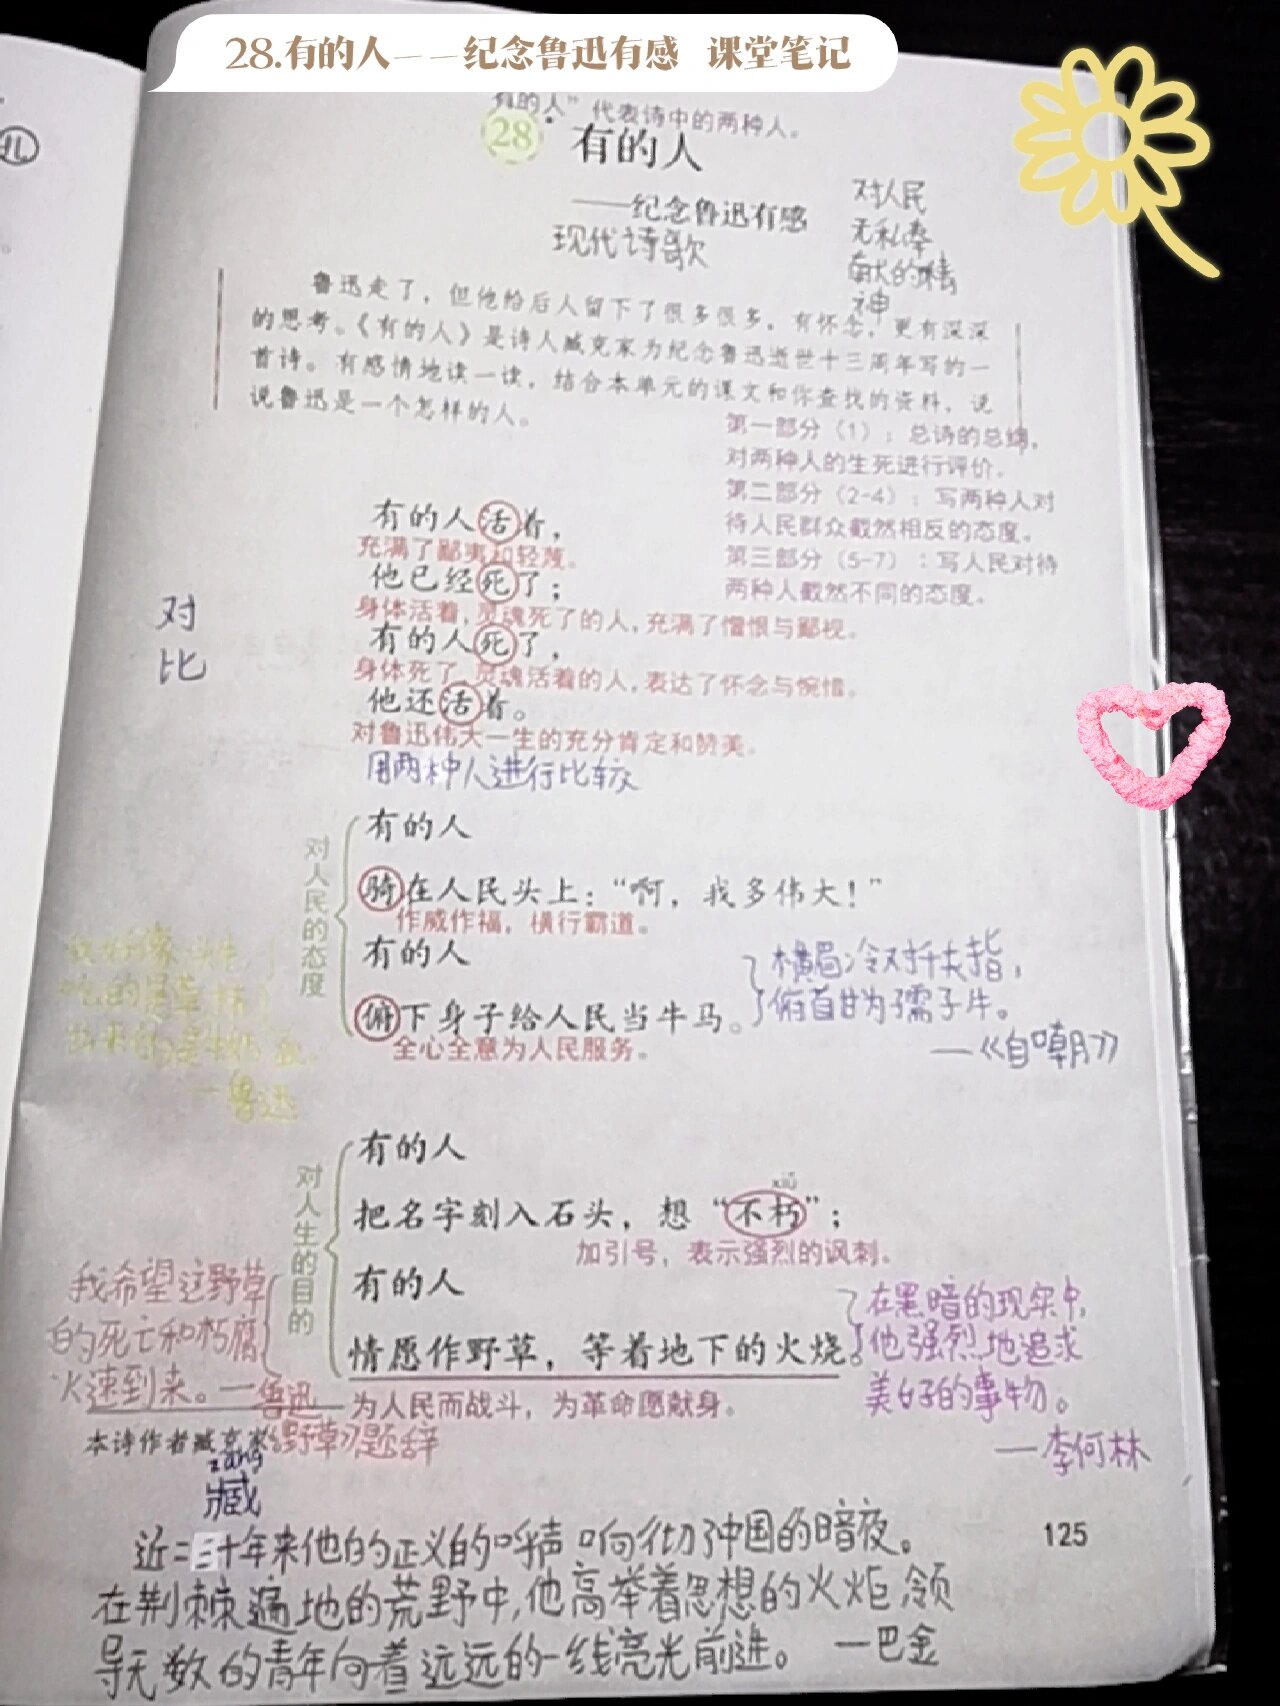 28.有的人——纪念鲁迅有感 课堂笔记
有的人”代表诗中的两种人。
28 有的人
——纪念鲁迅有感
现代诗歌
对人民
无私奉
献的精
神
鲁迅走了，但他给后人留下了很多很多，有怀念，更有深深
的思考。《有的人》是诗人臧克家为纪念鲁迅逝世十三周年写的一
首诗。有感情地读一读，结合本单元的课文和你查找的资料，说
说鲁迅是一个怎样的人。
第一部分（1）：总诗的总纲，
对两种人的生死进行评价。
第二部分（2-4）：写两种人对
待人民群众截然相反的态度。
第三部分（5-7）：写人民对待
两种人截然不同的态度。
对
比
有的人活着，
充满了鄙夷和轻蔑。
他已经死了；
身体活着，灵魂死了的人，充满了憎恨与鄙视。
有的人死了，
身体死了，灵魂活着的人，表达了怀念与惋惜。
他还活着。
对鲁迅伟大一生的充分肯定和赞美。
用两种人进行比较
对人民的态度
有的人
骑在人民头上：“啊，我多伟大！”
作威作福，横行霸道。
有的人
俯下身子给人民当牛马。
全心全意为人民服务。
横眉冷对千夫指，
俯首甘为孺子牛。
—《自嘲》
我好像一头牛，
吃的是草，挤
出来的是牛奶、血
—鲁迅
对人生的目的
有的人
xiǔ
把名字刻入石头，想“不朽”；
加引号，表示强烈的讽刺。
有的人
情愿作野草，等着地下的火烧。
为人民而战斗，为革命愿献身。
我希望这野草
的死亡和朽腐
火速到来。—鲁迅
《野草》题辞
在黑暗的现实中，
他强烈地追求
美好的事物。
—李何林
本诗作者臧克家
zāng
臧
125
近二三十年来他的正义的呼声响彻了中国的暗夜。
在荆棘遍地的荒野中，他高举着思想的火炬，领
导无数的青年向着远远的一线亮光前进。 —巴金